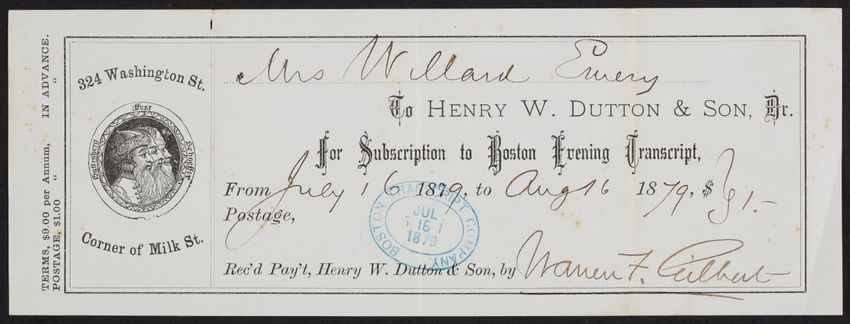 TERMS, $9.00 per Annum, IN ADVANCE.
POSTAGE, $1.00 " " "
324 Washington St.
Gutenberg Fust Schoeffer
Corner of Milk St.
Mrs Willard Emery
To HENRY W. DUTTON & SON, Dr.
For Subscription to Boston Evening Transcript,
From July 16 1879, to Aug 16 1879, $ 1.-
Postage,
BOSTON TRANSCRIPT COMPANY
JUL
16
1879
Rec'd Pay't, Henry W. Dutton & Son, by Warren F. Gilbert